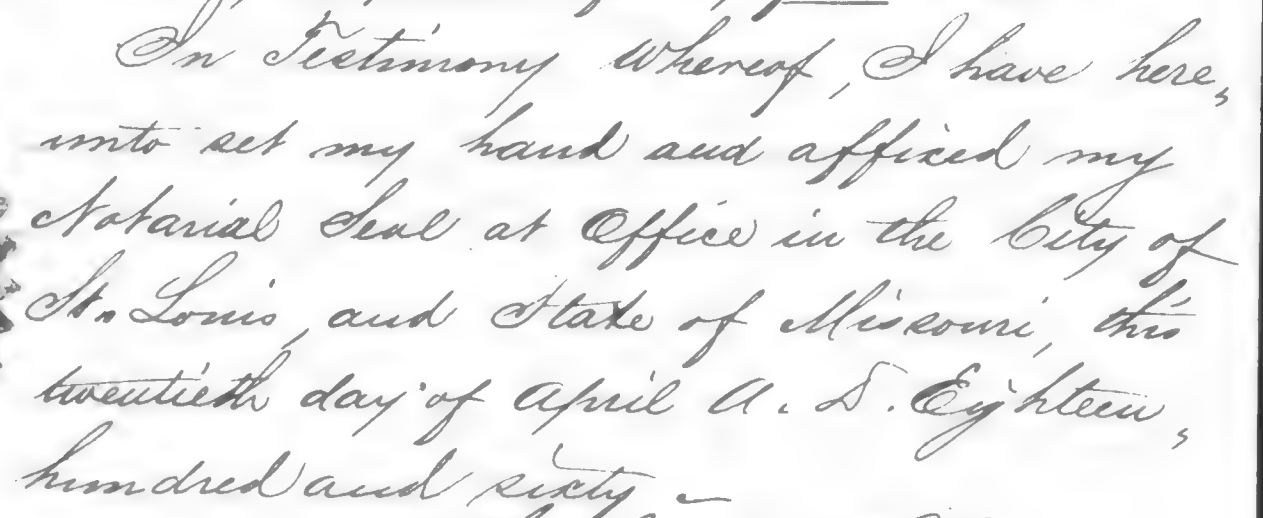 In Testimony Whereof, I have here,
unto set my hand and affixed my
Notarial Seal at Office in the City of
St. Louis, and State of Missouri, this
twentieth day of April A. D. Eighteen,
hundred and sixty –